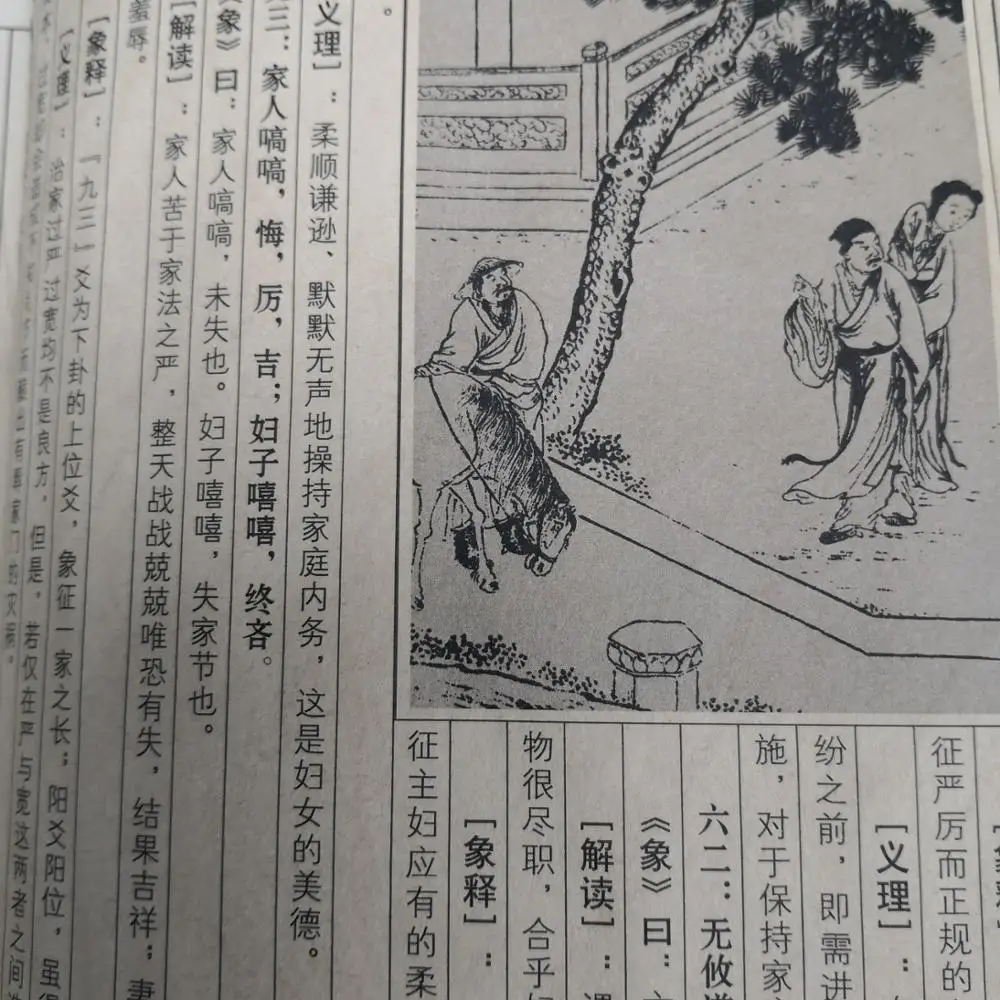 征严厉而正规的
[义理]：
纷之前，即需进
施，对于保持家
六二：无攸
《象》曰：
[解读]：
物很尽职，合乎
[象释]：
征主妇应有的柔
义理]：柔顺谦逊、默默无声地操持家庭内务，这是妇女的美德。
三：家人嗃嗃，悔，厉，吉；妇子嘻嘻，终吝。
《象》曰：家人嗃嗃，未失也。妇子嘻嘻，失家节也。
[解读]：家人苦于家法之严，整天战战兢兢唯恐有失，结果吉祥；妻
羞辱。
[象释]：「九三」爻为下卦的上位爻，象征一家之长；阳爻阳位，虽
[义理]：治家过严过宽均不是良方，但是，若仅在严与宽这两者之间选